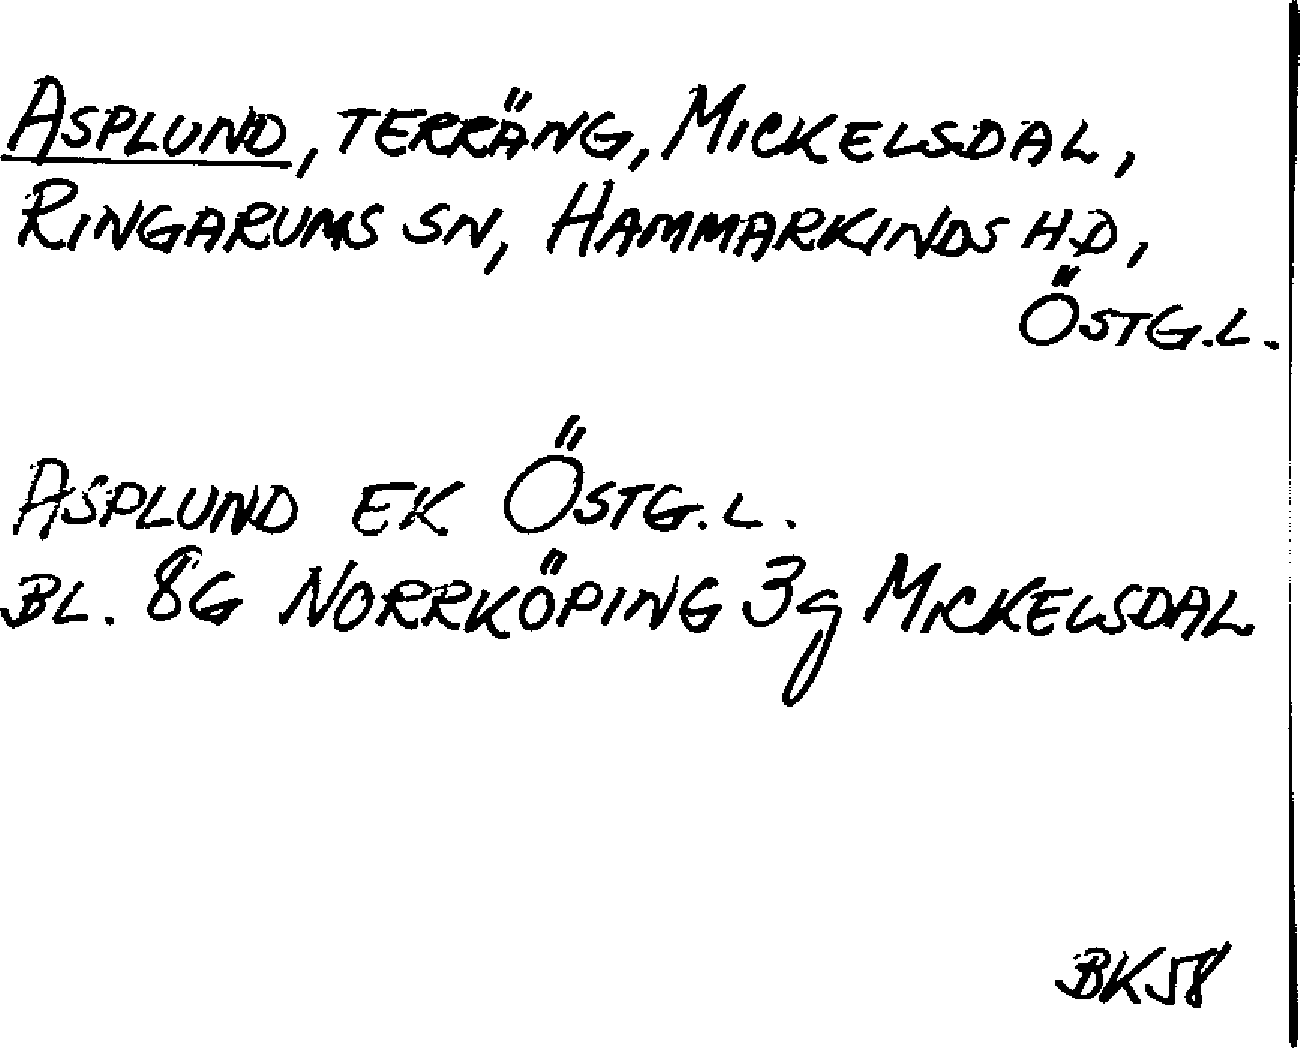 ASPLUND, TERRÄNG, MICKELSDAL,
RINGARUMS SN, HAMMARKINDS HD,
ÖSTG.L.
ASPLUND EK ÖSTG.L.
BL. 8G NORRKÖPING 3g MICKELSDAL
BK58